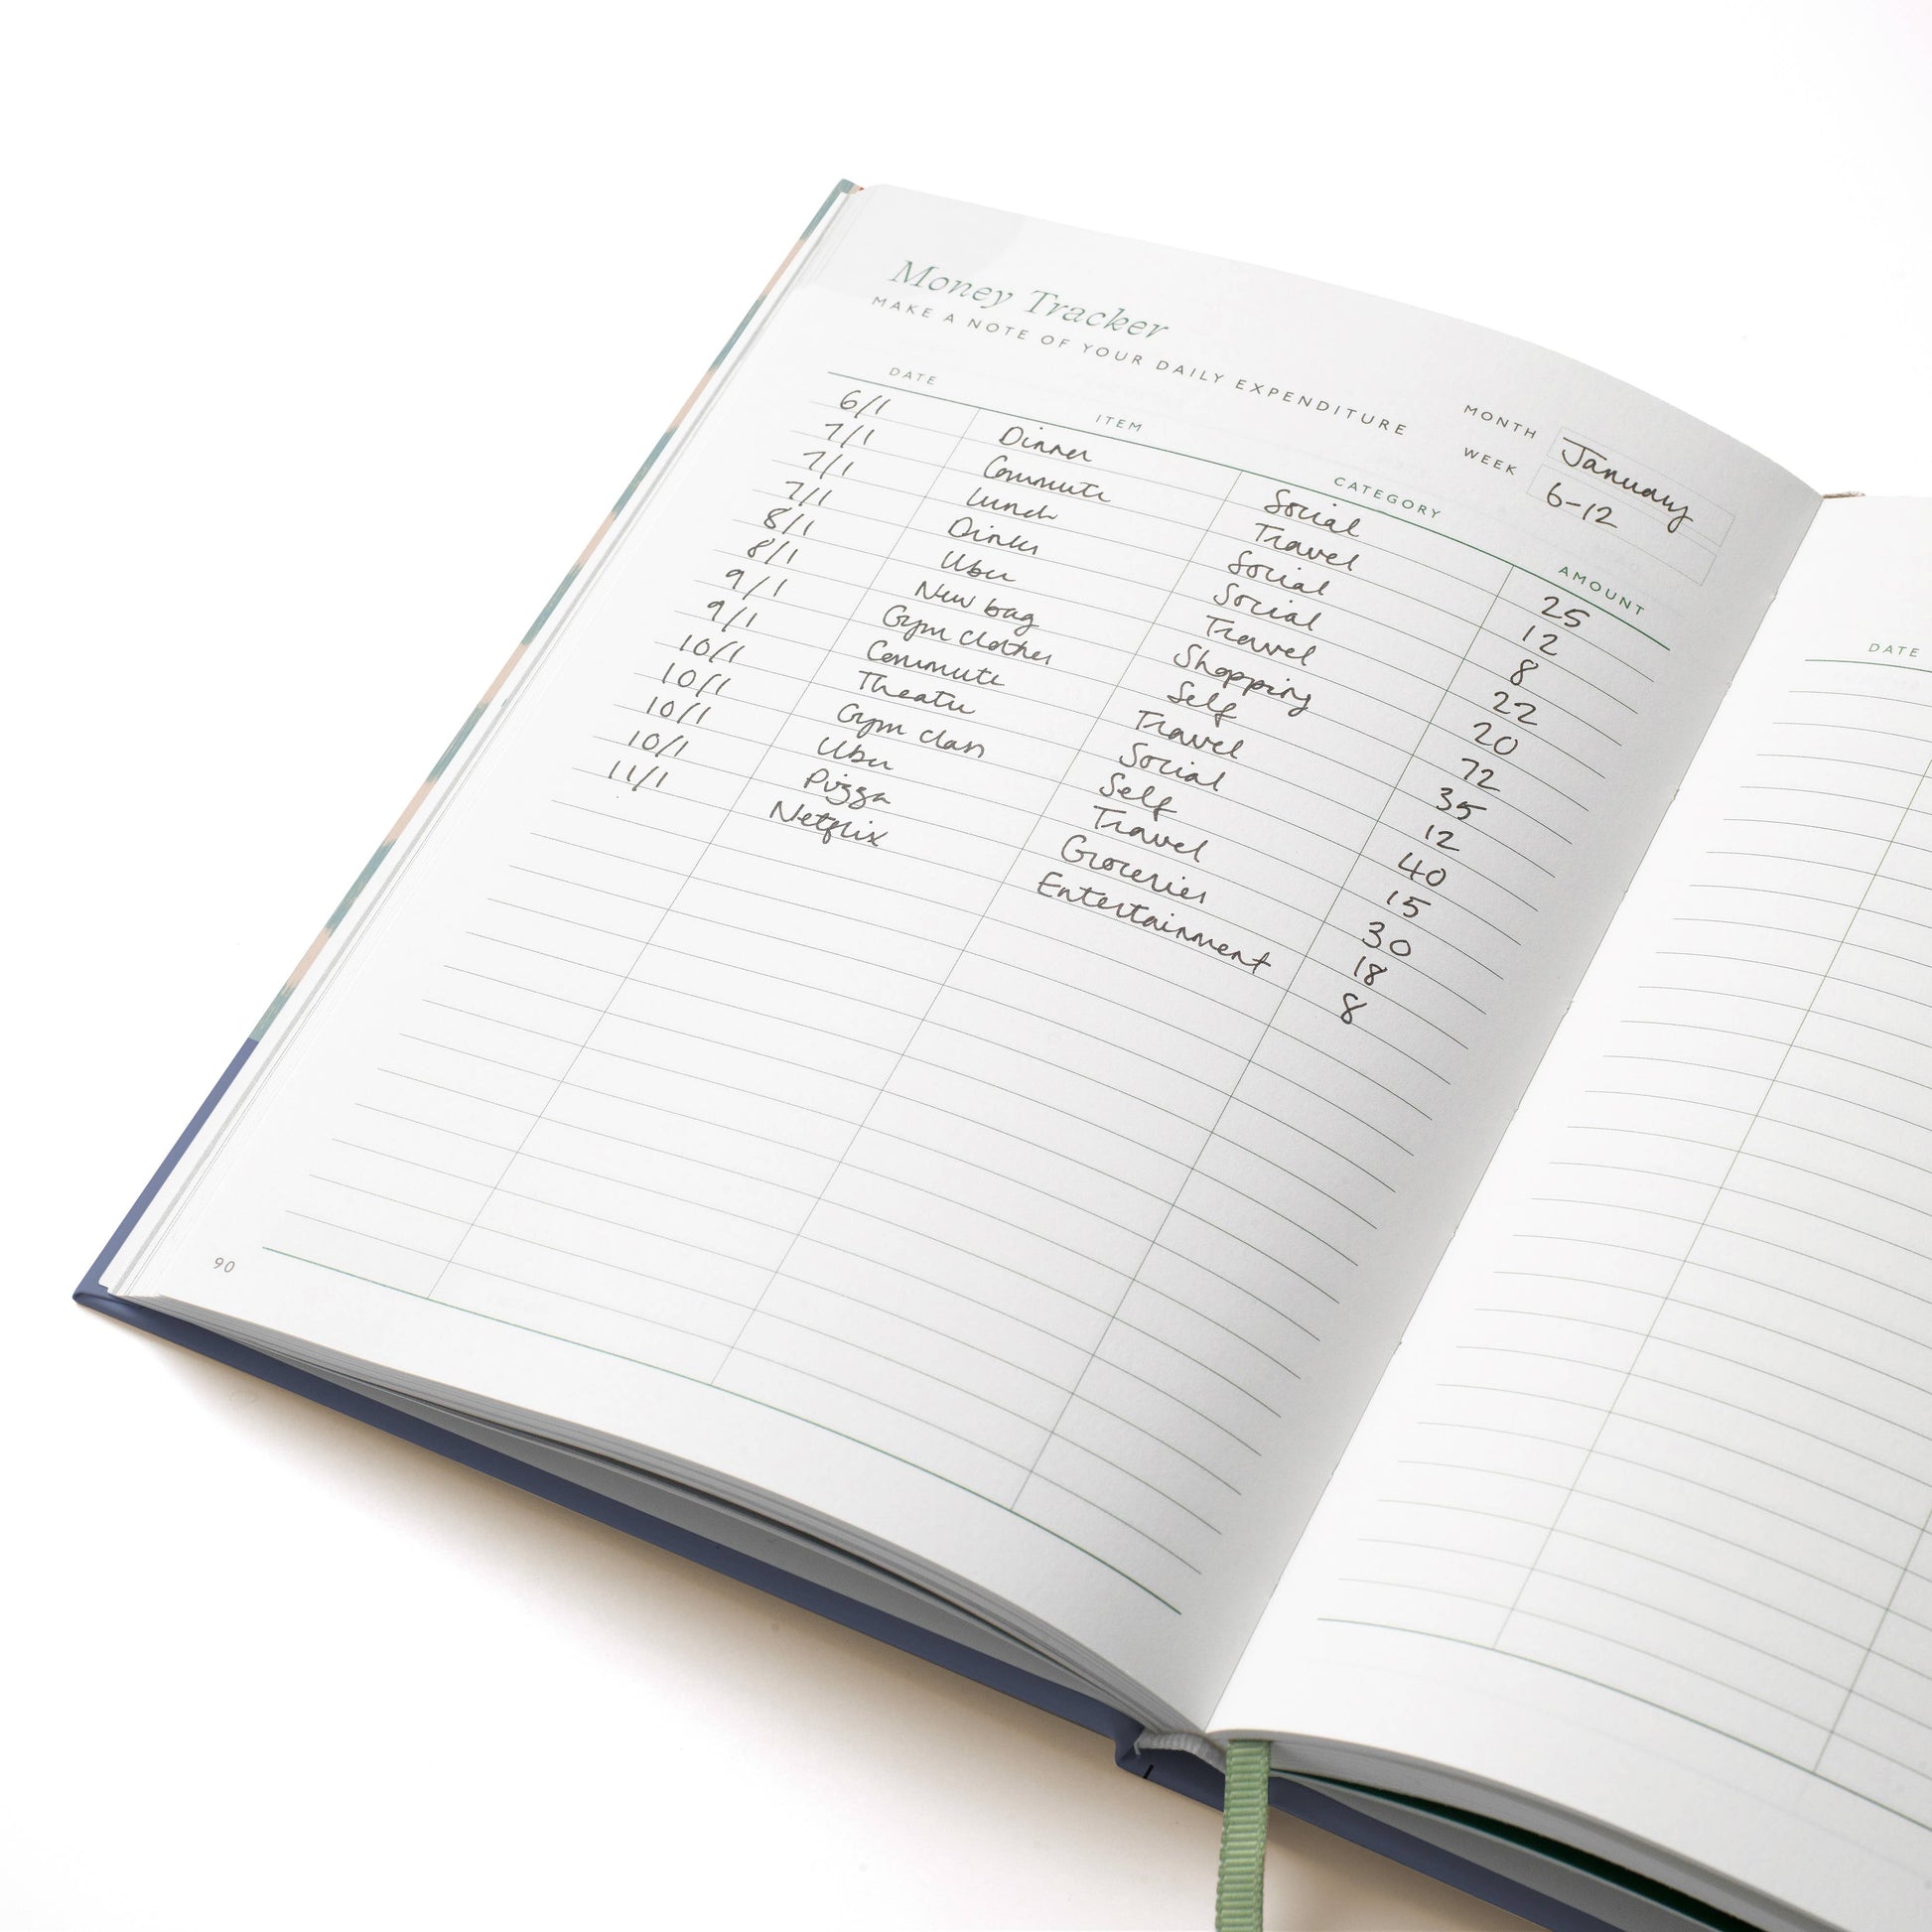 Money Tracker
MAKE A NOTE OF YOUR DAILY EXPENDITURE
MONTH January
WEEK 6-12
DATE ITEM CATEGORY AMOUNT
6/1 Dinner Social 25
7/1 Commute Travel 12
7/1 Lunch Social 8
7/1 Drinks Social 22
8/1 Uber Travel 20
8/1 New bag Shopping 72
9/1 Gym clothes Self 35
9/1 Commute Travel 12
10/1 Theatre Social 40
10/1 Gym class Self 15
10/1 Uber Travel 30
10/1 Pizza Groceries 18
11/1 Netflix Entertainment 8
90
DATE